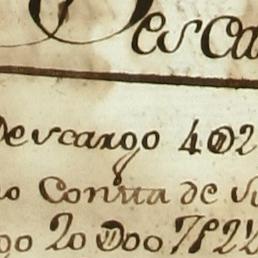 Desca
Descargo 4@2
o Consta de s
go 20@00 7822